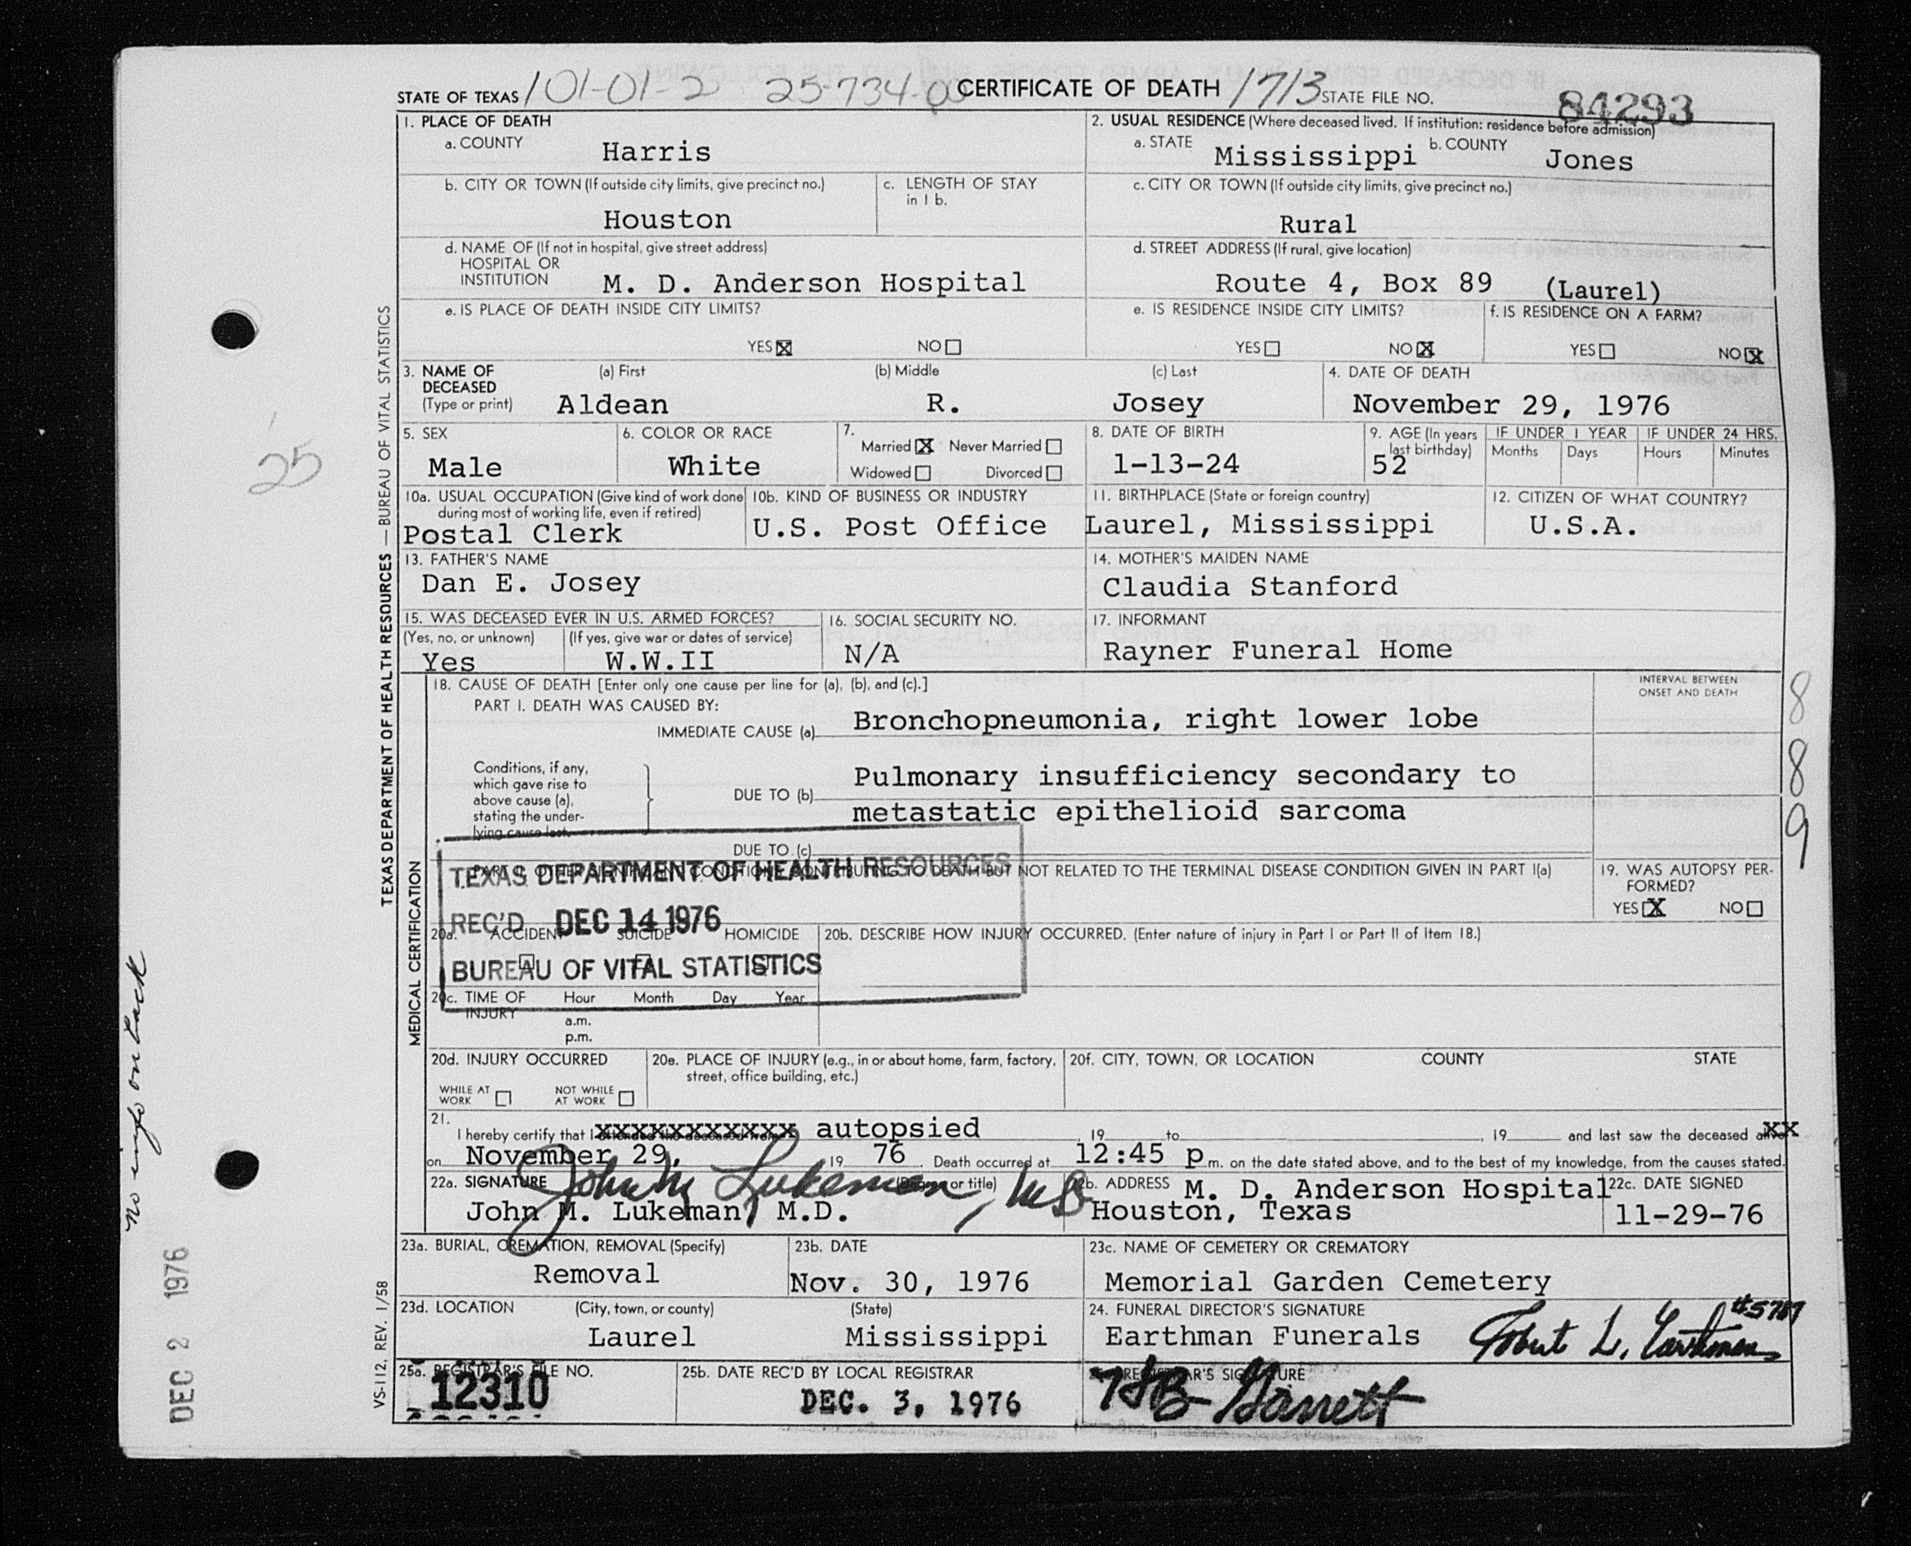 STATE OF TEXAS 101-01-2 25-734-00 CERTIFICATE OF DEATH 1713 STATE FILE NO. 84293
1. PLACE OF DEATH
a. COUNTY Harris
b. CITY OR TOWN (If outside city limits, give precinct no.) Houston
c. LENGTH OF STAY in 1 b.
d. NAME OF (If not in hospital, give street address) HOSPITAL OR INSTITUTION M. D. Anderson Hospital
e. IS PLACE OF DEATH INSIDE CITY LIMITS?
YES ☒ NO ☐
2. USUAL RESIDENCE (Where deceased lived. If institution: residence before admission)
a. STATE Mississippi b. COUNTY Jones
c. CITY OR TOWN (If outside city limits, give precinct no.)
Rural
d. STREET ADDRESS (If rural, give location)
Route 4, Box 89 (Laurel)
e. IS RESIDENCE INSIDE CITY LIMITS? YES ☐ NO ☒
f. IS RESIDENCE ON A FARM? YES ☐ NO ☒
3. NAME OF DECEASED (Type or print) (a) First Aldean (b) Middle R. (c) Last Josey
4. DATE OF DEATH November 29, 1976
5. SEX Male
6. COLOR OR RACE White
7. Married ☒ Never Married ☐ Widowed ☐ Divorced ☐
8. DATE OF BIRTH 1-13-24
9. AGE (In years last birthday) 52
IF UNDER 1 YEAR Months Days
IF UNDER 24 HRS. Hours Minutes
10a. USUAL OCCUPATION (Give kind of work done during most of working life, even if retired) Postal Clerk
10b. KIND OF BUSINESS OR INDUSTRY U.S. Post Office
11. BIRTHPLACE (State or foreign country) Laurel, Mississippi
12. CITIZEN OF WHAT COUNTRY? U.S.A.
13. FATHER'S NAME Dan E. Josey
14. MOTHER'S MAIDEN NAME Claudia Stanford
15. WAS DECEASED EVER IN U.S. ARMED FORCES?
(Yes, no, or unknown) Yes (If yes, give war or dates of service) W.W.II
16. SOCIAL SECURITY NO. N/A
17. INFORMANT Rayner Funeral Home
18. CAUSE OF DEATH [Enter only one cause per line for (a), (b), and (c).]
PART I. DEATH WAS CAUSED BY:
IMMEDIATE CAUSE (a) Bronchopneumonia, right lower lobe
Conditions, if any, which gave rise to above cause (a), stating the underlying cause last.
DUE TO (b) Pulmonary insufficiency secondary to
metastatic epithelioid sarcoma
DUE TO (c)
INTERVAL BETWEEN ONSET AND DEATH
PART II. OTHER SIGNIFICANT CONDITIONS CONTRIBUTING TO DEATH BUT NOT RELATED TO THE TERMINAL DISEASE CONDITION GIVEN IN PART I(a)
19. WAS AUTOPSY PERFORMED?
YES ☒ NO ☐
TEXAS DEPARTMENT OF HEALTH RESOURCES
REC'D DEC 14 1976
BUREAU OF VITAL STATISTICS
20a. ACCIDENT SUICIDE HOMICIDE
20b. DESCRIBE HOW INJURY OCCURRED. (Enter nature of injury in Part I or Part II of Item 18.)
20c. TIME OF INJURY Hour Month Day Year
a.m.
p.m.
20d. INJURY OCCURRED
WHILE AT WORK ☐ NOT WHILE AT WORK ☐
20e. PLACE OF INJURY (e.g., in or about home, farm, factory, street, office building, etc.)
20f. CITY, TOWN, OR LOCATION COUNTY STATE
21. I hereby certify that I xxxxxxxxxxx autopsied , 19 to , 19 and last saw the deceased xx
on November 29, 19 76 . Death occurred at 12:45 p m. on the date stated above, and to the best of my knowledge, from the causes stated.
22a. SIGNATURE (Degree or title)
John M. Lukeman, MD
John M. Lukeman, M.D.
22b. ADDRESS M. D. Anderson Hospital
Houston, Texas
22c. DATE SIGNED
11-29-76
23a. BURIAL, CREMATION, REMOVAL (Specify) Removal
23b. DATE Nov. 30, 1976
23c. NAME OF CEMETERY OR CREMATORY Memorial Garden Cemetery
23d. LOCATION (City, town, or county) Laurel (State) Mississippi
24. FUNERAL DIRECTOR'S SIGNATURE Earthman Funerals
25a. REGISTRAR'S FILE NO. 12310
25b. DATE REC'D BY LOCAL REGISTRAR DEC. 3, 1976
REGISTRAR'S SIGNATURE
Garrett
MEDICAL CERTIFICATION
TEXAS DEPARTMENT OF HEALTH RESOURCES — BUREAU OF VITAL STATISTICS
VS-112, REV. 1/58
25
889
no info on back
DEC 2 1976